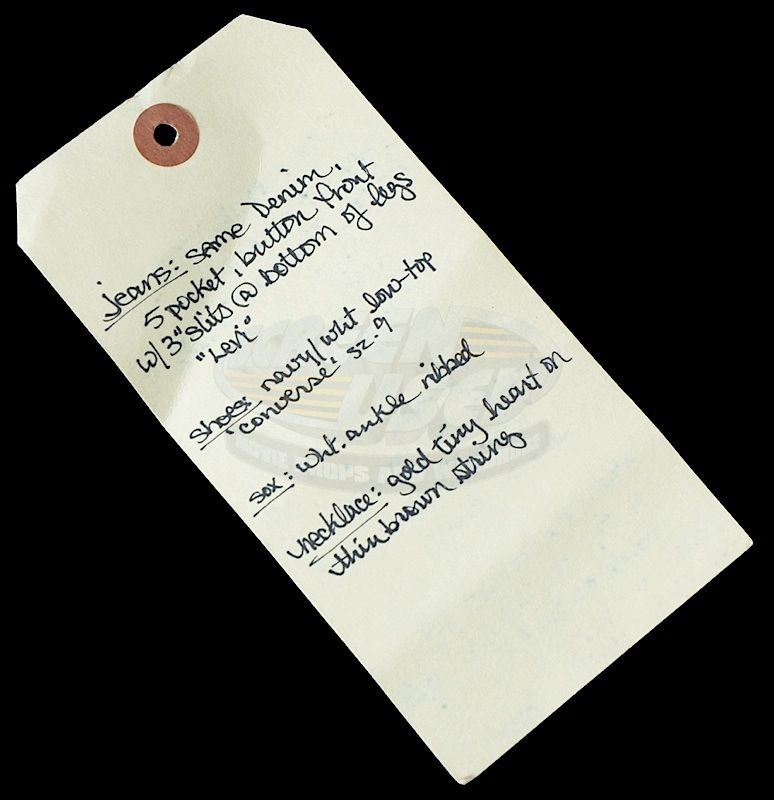 jeans: SAME Denim,
5 pocket, button front
w/3" slits @ bottom of legs
"Levi"
shoes: navy/wht low-top
'converse' sz. 9
sox: wht. ankle ribbed
necklace: gold tiny heart on
thin brown string
SCREEN
USED
MOVIE PROPS